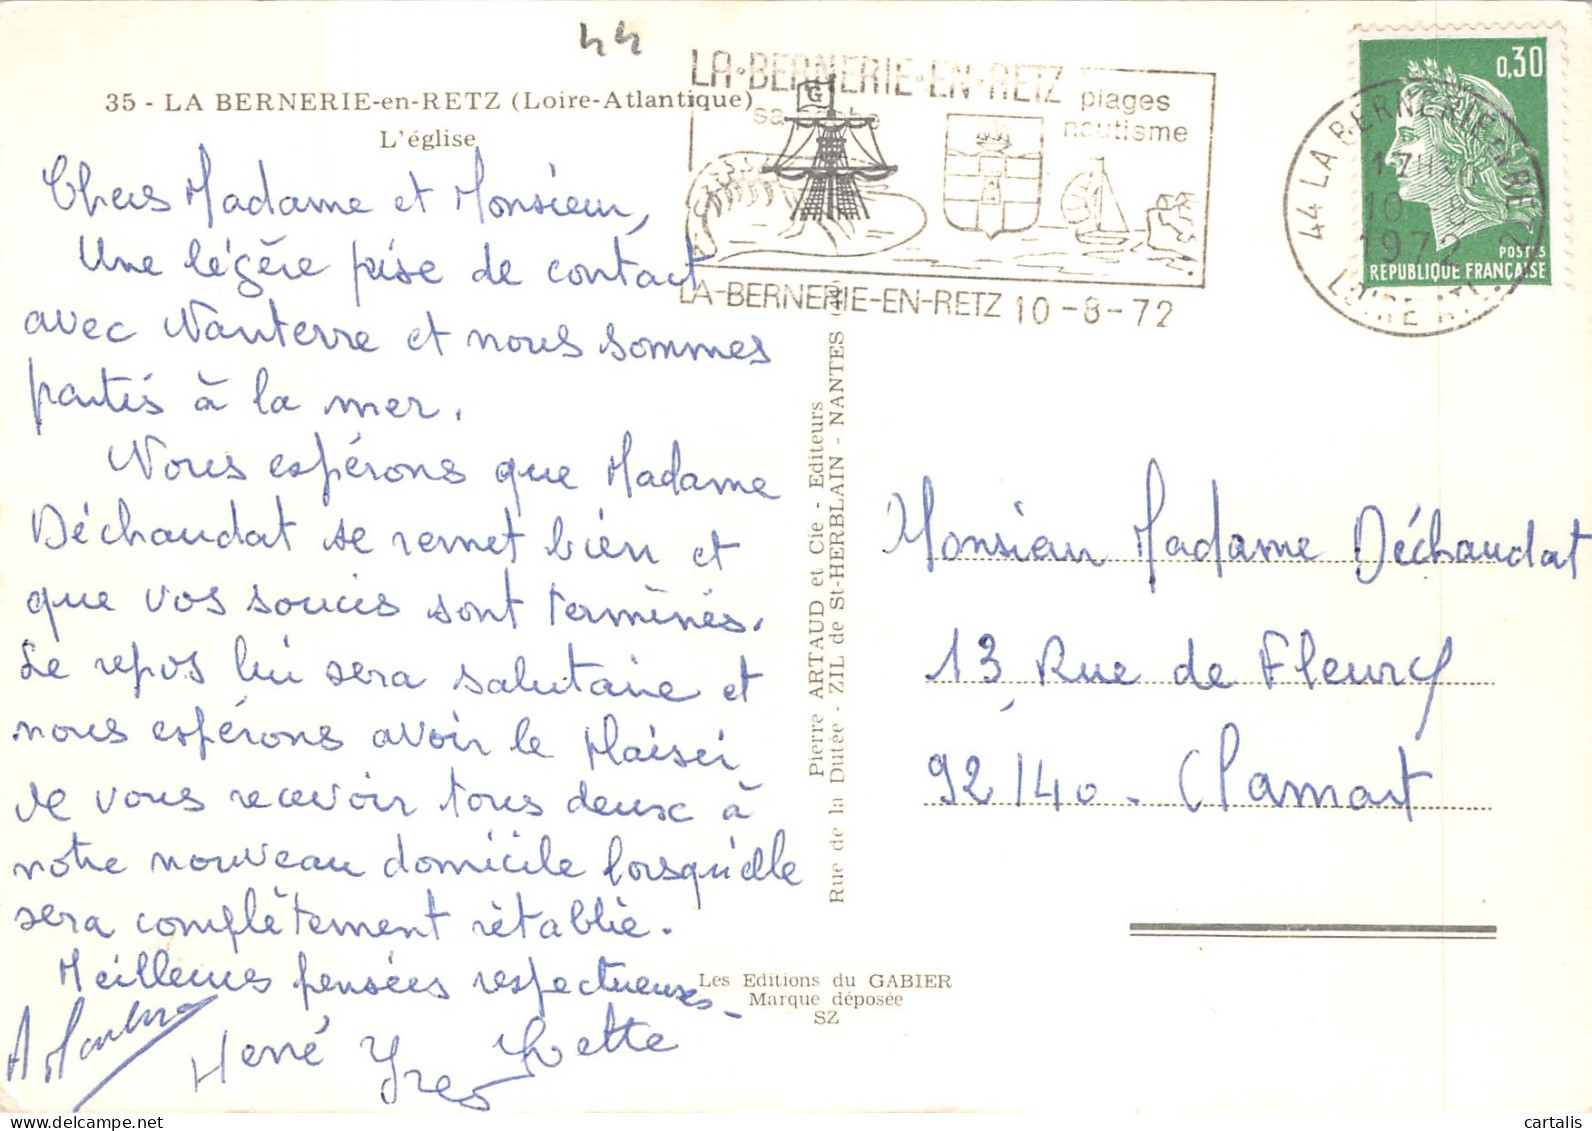 44
35 - LA BERNERIE-en-RETZ (Loire-Atlantique)
L'église
Chers Madame et Monsieur,
Une légère prise de contact
avec Nanterre et nous sommes
partis à la mer.
Nous espérons que Madame
Déchaudat se remet bien et
que vos soucis sont terminés.
Le repos lui sera salutaire et
nous espérons avoir le plaisir
de vous recevoir tous deux à
notre nouveau domicile lorsqu'elle
sera complètement rétablie.
Meilleures pensées respectueuses
Hervé Yves Yvette
LA-BERNERIE-EN-RETZ
G
plages
nautisme
LA-BERNERIE-EN-RETZ 10-8-72
44 LA BERNERIE-EN-RETZ
10 8
1972
LOIRE ATL.
0,30
POSTES
REPUBLIQUE FRANÇAISE
Pierre ARTAUD et Cie - Editeurs
Rue de la Dutée - ZIL de St-HERBLAIN - NANTES
Les Editions du GABIER
Marque déposée
SZ
Monsieur Madame Déchaudat
13, Rue de Fleury
92140. Clamart
cartalis